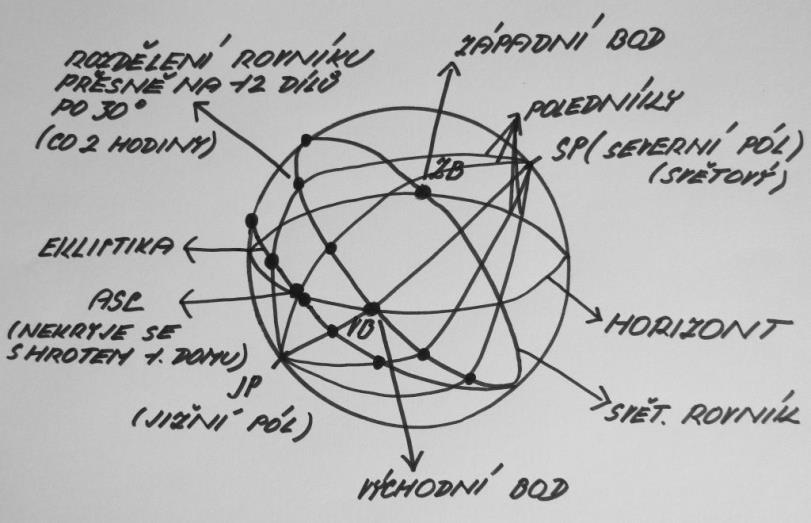 ROZDĚLENÍ ROVNÍKU
PŘESNĚ NA 12 DÍLŮ
PO 30°
(CO 2 HODINY)
ZÁPADNÍ BOD
POLEDNÍKY
SP (SEVERNÍ PÓL)
(SVĚTOVÝ)
ZB
EKLIPTIKA
ASC
(NEKRYJE SE
S HROTEM 1. DOMU)
VB
HORIZONT
JP
(JIŽNÍ PÓL)
SVĚT. ROVNÍK
VÝCHODNÍ BOD